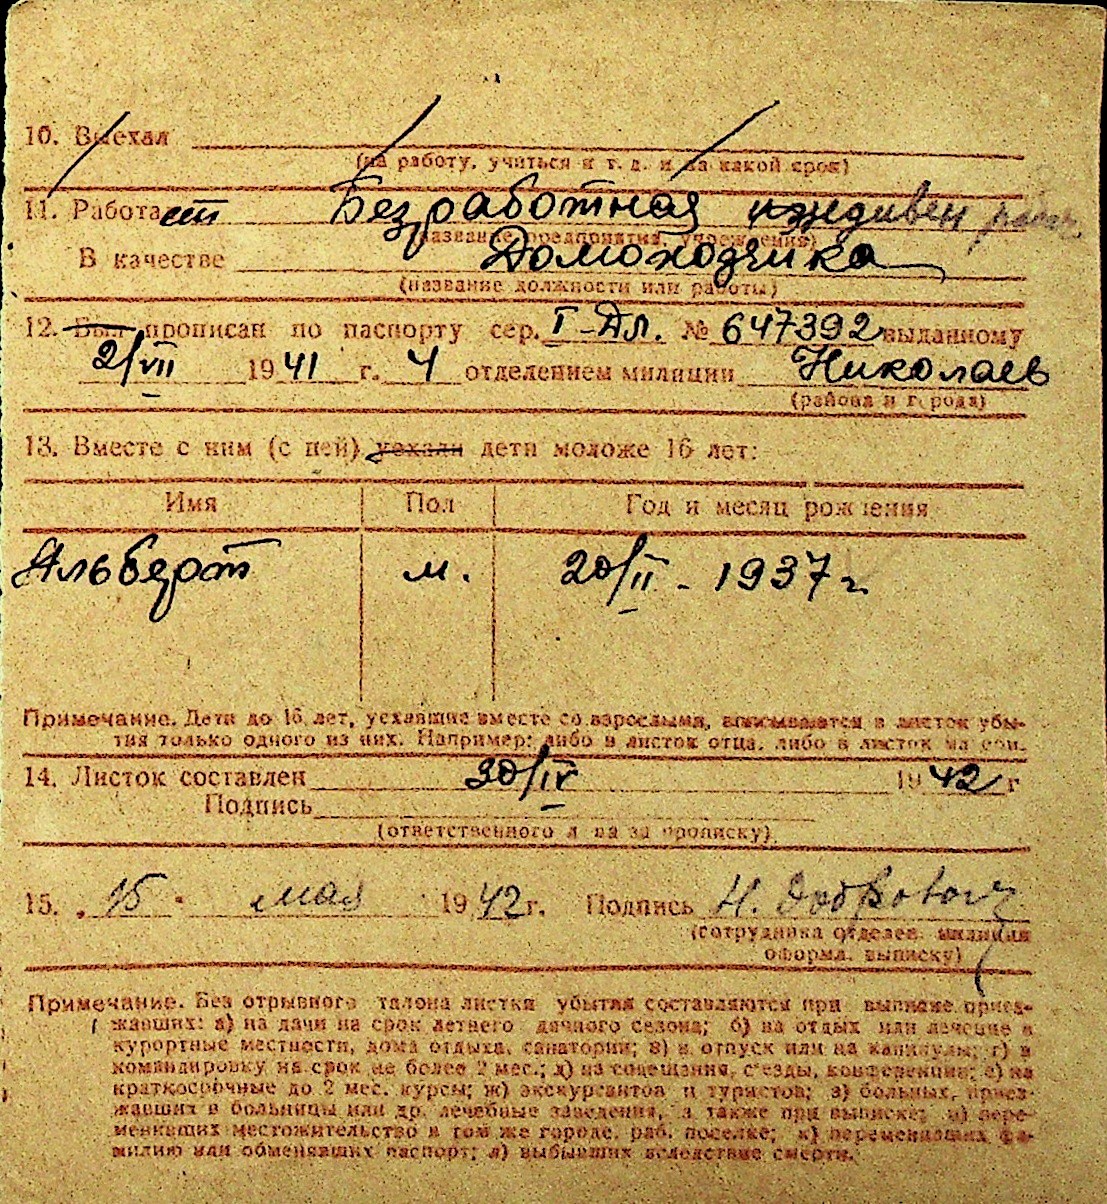 10. Выехал
(на работу, учиться и т. д. и на какой срок)
11. Работает Безработная иждивен
(название предприятия, учреждения)
В качестве Домохозяйка
(название должности или работы)
12. Был прописан по паспорту сер. I-Дл. № 647392 выданному
2/VII 1941 г. 4 отделением милиции Николаев
(района и города)
13. Вместе с ним (с ней) уехали дети моложе 16 лет:
Имя Пол Год и месяц рождения
Альберт м. 20/II - 1937 г
Примечание. Дети до 16 лет, уехавшие вместе со взрослыми, вписываются в листок убы-
тия только одного из них. Например: либо в листок отца, либо в листок матери.
14. Листок составлен 30/IV 1942 г
Подпись
(ответственного лица за прописку)
15. 15 мая 1942 г. Подпись Н.
(сотрудника отделен. милиции
оформл. выписку)
Примечание. Без отрывного талона листки убытия составляются при выписке приез-
жавших: а) на дачи на срок летнего дачного сезона; б) на отдых или лечение в
курортные местности, дома отдыха, санатории; в) в отпуск или на каникулы; г) в
командировку на срок не более 2 мес.; д) на совещания, с'езды, конференции; е) на
краткосрочные до 2 мес. курсы; ж) экскурсантов и туристов; з) больных, приез-
жавших в больницы или др. лечебные заведения, а также при выписке; и) пере-
менивших местожительство в том же городе, раб. поселке; к) переменивших фа-
милию или обменявших паспорт; л) выбывших вследствие смерти.